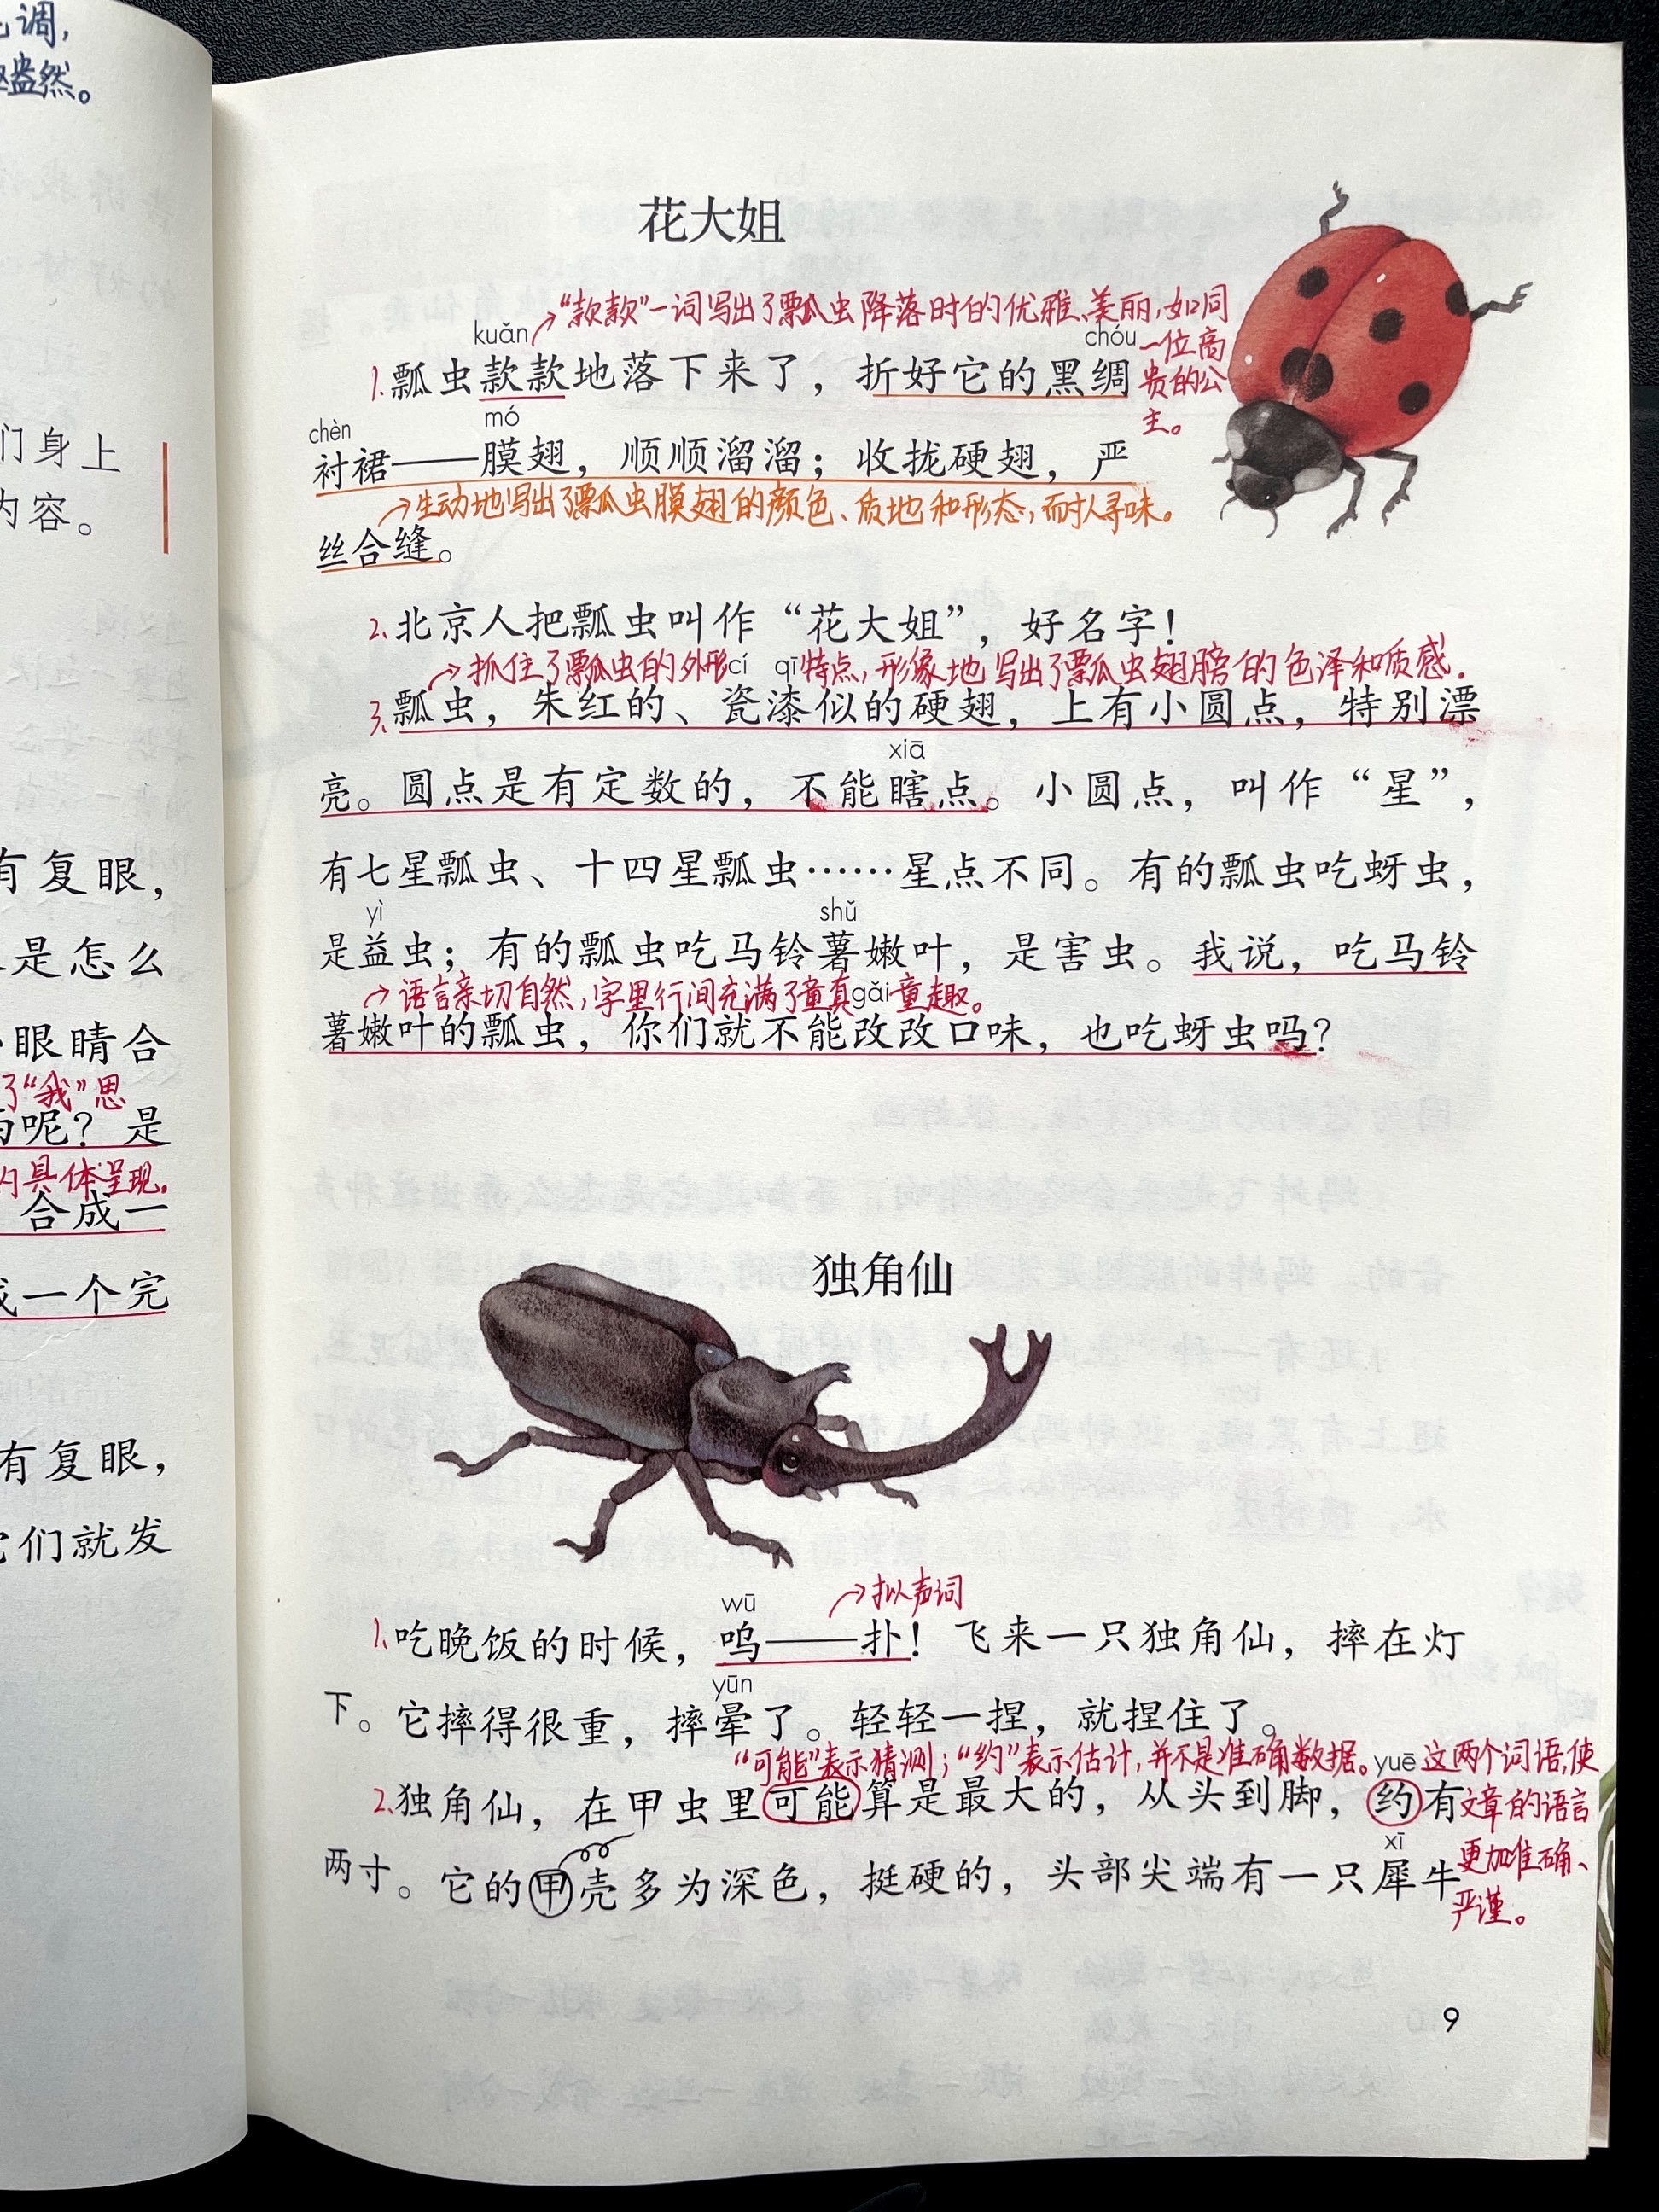 调，
盎然。
们身上
内容。
有复眼，
是怎么
眼睛合
了“我”思
呢？是
具体呈现。
合成一
一个完
有复眼，
们就发
花大姐
“款款”一词写出了瓢虫降落时的优雅、美丽，如同
一位高
贵的公
主。
kuǎn chóu
1.瓢虫款款地落下来了，折好它的黑绸
chèn mó
衬裙——膜翅，顺顺溜溜；收拢硬翅，严
生动地写出了瓢虫膜翅的颜色、质地和形态，耐人寻味。
丝合缝。
2.北京人把瓢虫叫作“花大姐”，好名字！
抓住了瓢虫的外形特点，形象地写出了瓢虫翅膀的色泽和质感。
cí qī
3.瓢虫，朱红的、瓷漆似的硬翅，上有小圆点，特别漂
xiā
亮。圆点是有定数的，不能瞎点。小圆点，叫作“星”，
有七星瓢虫、十四星瓢虫……星点不同。有的瓢虫吃蚜虫，
yì shǔ
是益虫；有的瓢虫吃马铃薯嫩叶，是害虫。我说，吃马铃
语言亲切自然，字里行间充满了童真童趣。
gǎi
薯嫩叶的瓢虫，你们就不能改改口味，也吃蚜虫吗？
独角仙
拟声词
wū
1.吃晚饭的时候，呜——扑！飞来一只独角仙，摔在灯
yūn
下。它摔得很重，摔晕了。轻轻一捏，就捏住了。
“可能”表示猜测；“约”表示估计，并不是准确数据。这两个词语，使
文章的语言
更加准确、
严谨。
yuē
2.独角仙，在甲虫里可能算是最大的，从头到脚，约有
xī
两寸。它的甲壳多为深色，挺硬的，头部尖端有一只犀牛
9